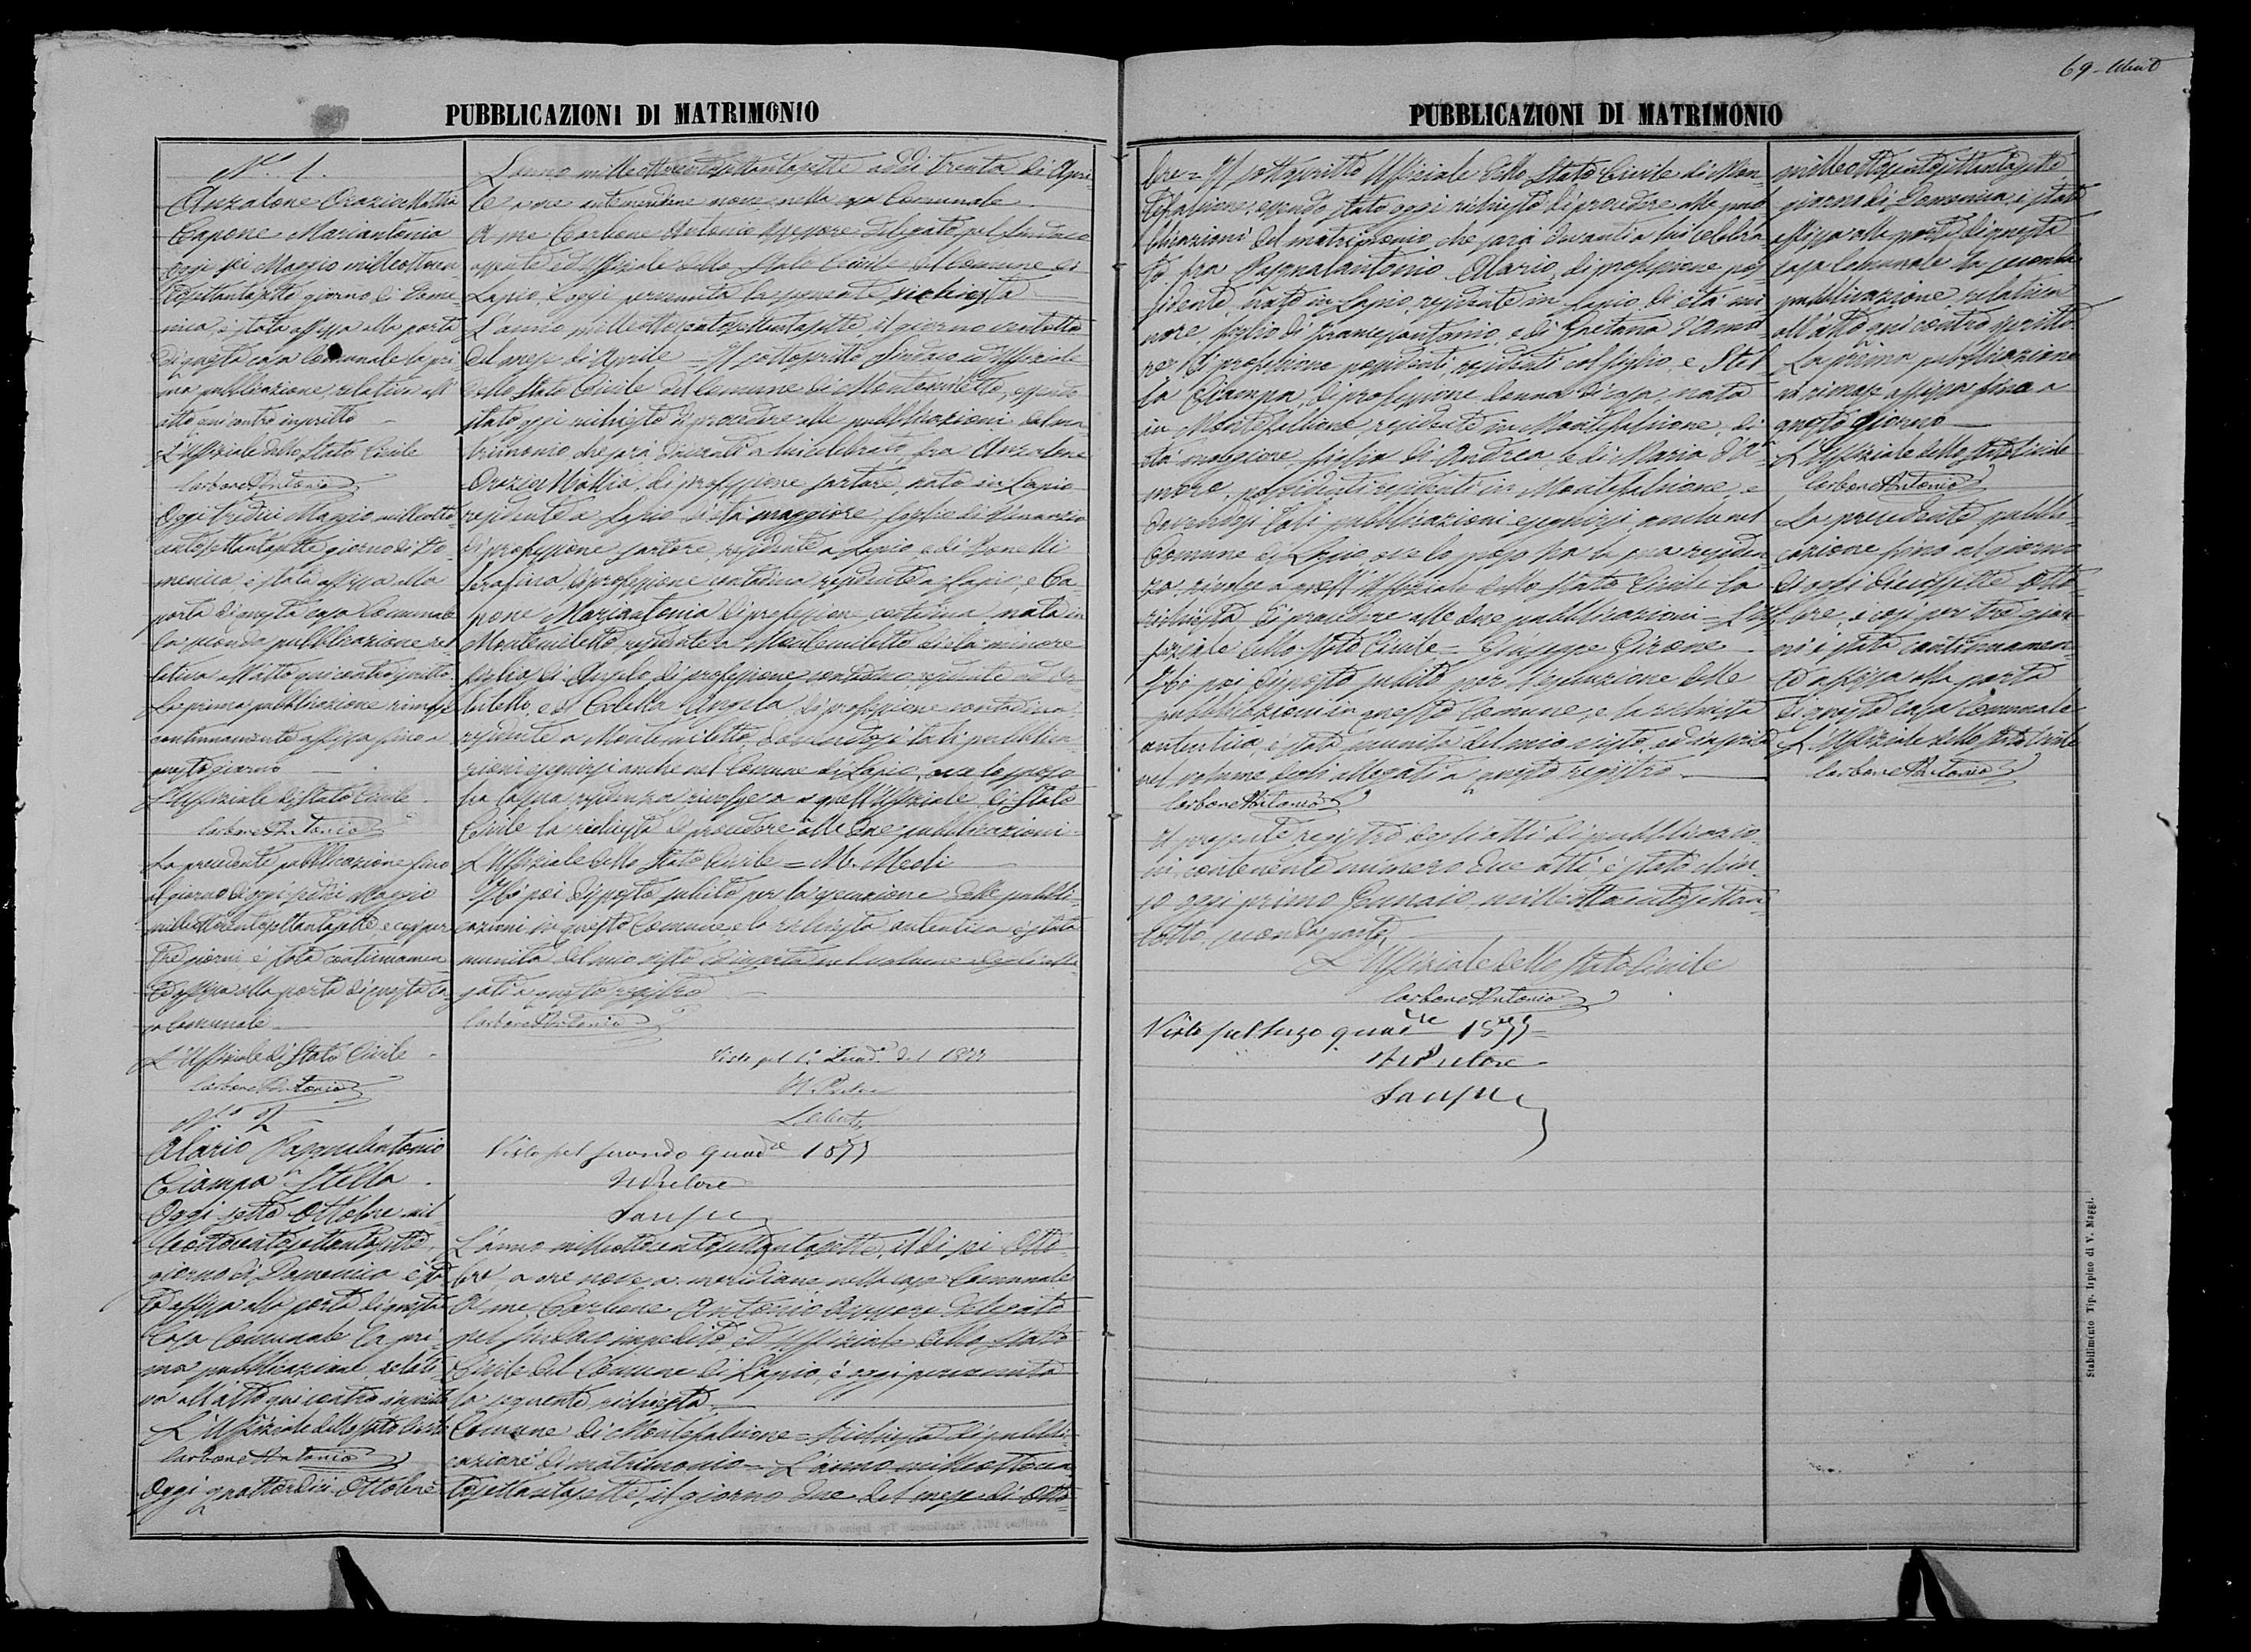 PUBBLICAZIONI DI MATRIMONIO
N.° 1.
Anzalone Orazio Mattia
Capone Mariantonia
Oggi sei Maggio milleottocen
tosettantasette giorno di Dome
nica, è stata affissa alla porta
di questa casa Comunale la pri
ma pubblicazione, relativa all'
atto qui contro inscritto
L'Uffiziale dello Stato Civile
Carbone Antonio
Oggi tredici Maggio milleotto-
centosettantasette giorno di Do-
menica, è stata affissa alla
porta di questa casa Comunale
la seconda pubblicazione re-
lativa all'atto qui contro scritto.
La prima pubblicazione rimase
continuamente affissa fino a
questo giorno
L'Uffiziale di Stato Civile
Carbone Antonio
La precedente pubblicazione fino
al giorno di oggi sedici Maggio
milleottocentosettantasette e così per
tre giorni è stata continuamen
te affissa alla porta di questa Ca-
sa Comunale
L'Uffiziale di Stato Civile
Carbone Antonio
N.° 2
Alario Pasqualantonio
Ciampa Stella
Oggi sette Ottobre mil-
leottocentosettantasette,
giorno di Domenica è sta
ta affissa alla porta di questa
Casa Comunale la pri-
ma pubblicazione, relati-
va all'atto qui contro inscritto
L'Uffiziale dello Stato Civile
Carbone Antonio
Oggi quattordici Ottobre
L'anno milleottocentosettantasette addì trenta di Apri-
le a ore antemeridiane nove, nella casa Comunale
A me Carbone Antonio Assessore Delegato pel Sindaco
assente ed Uffiziale dello Stato Civile del Comune di
Lapio, è oggi pervenuta la seguente richiesta
L'anno milleottocentosettantasette il giorno ventotto
del mese di Aprile = Il sottoscritto Sindaco ed Uffiziale
dello Stato Civile del Comune di Montemiletto, essendo
stato oggi richiesto di procedere alle pubblicazioni del ma-
trimonio che sarà davanti a lui celebrato, fra Anzalone
Orazio Mattia, di professione sartore, nato in Lapio
residente a Lapio di età maggiore, figlio di Venanzio
di professione sartore, residente a Lapio, e di Bonetti
Serafina, di professione contadina residente a Lapio, e Ca-
pone Mariantonia di professione contadina, nata in
Montemiletto residente a Montemiletto di età minore
figlia di Angelo di professione contadino, residente
e di Coletta Angela di professione contadina
residente a Montemiletto, e dovendosi tali pubblica-
zioni eseguirsi anche nel Comune di Lapio, ove lo sposo
ha la sua residenza, rivolge a quell'Uffiziale di Stato
Civile la richiesta di procedere alle due pubblicazioni =
L'Uffiziale dello Stato Civile = M. Meoli
Ho poi disposto subito per la esecuzione delle pubbli-
cazioni in questo Comune e la richiesta autentica è stata
munita del mio visto ed inserta nel volume degli alle-
gati a questo registro
Carbone Antonio
Visto pel 1° Quad. del 1877
Il Pretore
Visto pel secondo quad.le 1877
Il Pretore
L'anno milleottocentosettantasette, il dì sei Otto-
bre, a ore nove a. meridiane, nella casa Comunale
A me Carbone Antonio Assessore Delegato
pel Sindaco impedito, ed Uffiziale dello Stato
Civile del Comune di Lapio, è oggi pervenuta
la seguente richiesta
Comune di Montefalcione = Richiesta di pubbli-
cazioni di matrimonio = L'anno milleottocen-
tosettantasette, il giorno due del mese di Otto-
69
PUBBLICAZIONI DI MATRIMONIO
bre = Il sottoscritto Uffiziale dello Stato Civile di Mon-
tefalcione, essendo stato oggi richiesto di procedere alle pub
blicazioni del matrimonio che sarà davanti a lui celebra-
to fra Pasqualantonio Alario, di professione pos
sidente, nato in Lapio, residente in Lapio, di età mi-
nore, figlio di Francescantonio, e di Gaetana d'Amo
re di professione possidenti, residenti col figlio, e Stel
la Ciampa, di professione donna di casa, nata
in Montefalcione, residente in Montefalcione, di
età maggiore, figlia di Andrea, e di Maria d'A-
more, possidenti residenti in Montefalcione, e
dovendosi tali pubblicazioni eseguirsi anche nel
Comune di Lapio, ove lo sposo ha la sua residen
za, rivolge a quell'Uffiziale dello Stato Civile la
richiesta di procedere alle due pubblicazioni = L'Uf-
fiziale dello Stato Civile = Giuseppe Girone
Ho poi disposto subito per l'esecuzione delle
pubblicazioni in questo Comune, e la richiesta
autentica, è stata munita del mio visto, ed inserita
nel volume degli allegati a questo registro
Carbone Antonio
Il presente registro degli atti di pubblicazio-
ni, contenente numero due atti, è stato chiu-
so oggi primo Gennaio milleottocentosettan
totto, seconda parte
L'Uffiziale dello Stato Civile
Carbone Antonio
Visto pel terzo quad.le 1877
Il Pretore
milleottocentosettantasette,
giorno di Domenica, è stata
affissa alla porta di questa
casa Comunale la seconda
pubblicazione, relativa
all'atto qui contro scritto.
La prima pubblicazione
rimase affissa fino a
questo giorno
L'Uffiziale dello Stato Civile
Carbone Antonio
La precedente pubbli-
cazione fino al giorno
di oggi diecissette Otto
bre, e così per tre gior-
ni è stata continuamen
te affissa alla porta
di questa Casa Comunale
L'Uffiziale dello Stato Civile
Carbone Antonio
Stabilimento Tip. Irpino di V. Maggi.